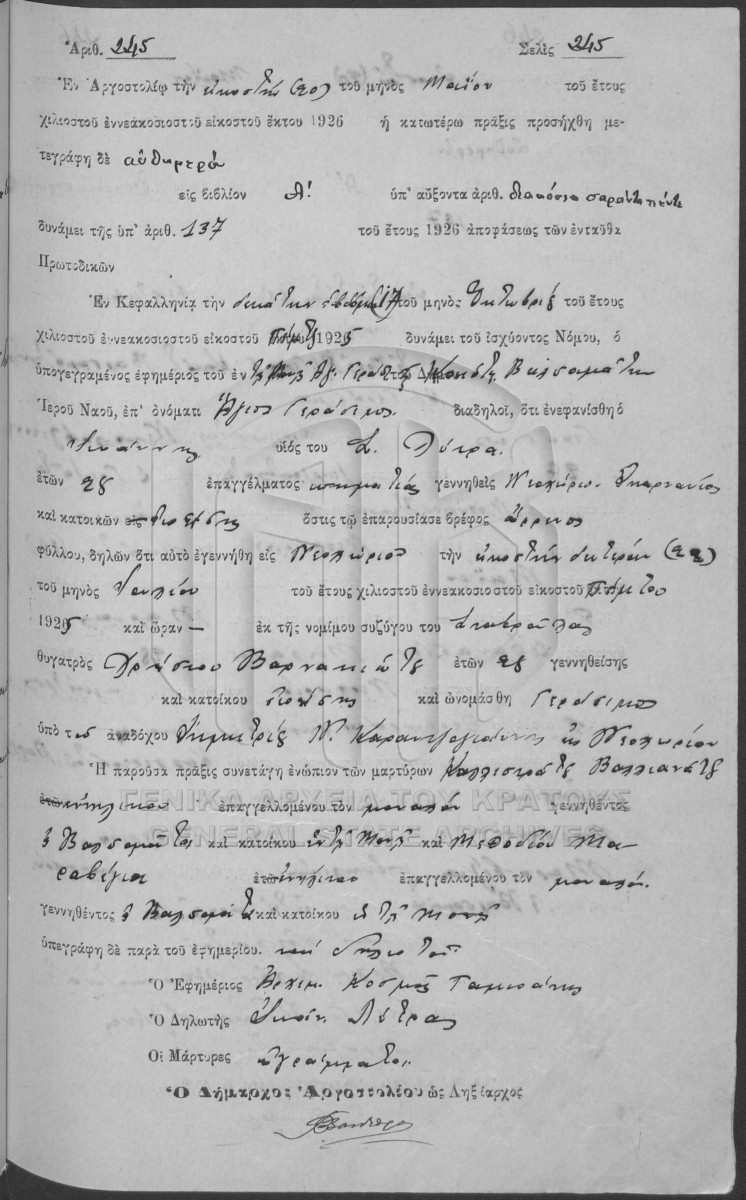 Ἀριθ. 245 Σελὶς 245
Ἐν Ἀργοστολίῳ τὴν εἰκοστὴν (20) τοῦ μηνὸς Μαΐου τοῦ ἔτους
χιλιοστοῦ ἐννεακοσιοστοῦ εἰκοστοῦ ἕκτου 1926 ἡ κατωτέρω πρᾶξις προσήχθη με-
τεγράφη δὲ αὐθημερόν
εἰς βιβλίον Α! ὑπ' αὔξοντα ἀριθ. διακόσια σαράντα πέντε
δυνάμει τῆς ὑπ' ἀριθ. 137 τοῦ ἔτους 1926 ἀποφάσεως τῶν ἐνταῦθα
Πρωτοδικῶν
Ἐν Κεφαλληνίᾳ τὴν δεκάτην ἑβδόμην (17) τοῦ μηνὸς Ὀκτωβρίου τοῦ ἔτους
χιλιοστοῦ ἐννεακοσιοστοῦ εἰκοστοῦ πέμπτου 1925 δυνάμει τοῦ ἰσχύοντος Νόμου, ὁ
ὑπογεγραμένος ἐφημέριος τοῦ ἐν τῇ Μονῇ Ἁγ. Γερασίμου Κοινότ. Βαλσαμάτων
Ἱεροῦ Ναοῦ, ἐπ' ὀνόματι Ἅγιος Γεράσιμος διαδηλοῖ, ὅτι ἐνεφανίσθη ὁ
Ἰωάννης υἱὸς του Σ. Λύτρα.
ἐτῶν 28 ἐπαγγέλματος κτηματίας γεννηθεὶς Νεοχώριον Ἀκαρνανίας
καὶ κατοικῶν εἰς ὅστις τῷ ἐπαρουσίασε βρέφος ἄρρενος
φύλλου, δηλῶν ὅτι αὐτὸ ἐγεννήθη εἰς Νεοχώριον τὴν εἰκοστὴν δευτέραν (22)
τοῦ μηνὸς Ἰουλίου τοῦ ἔτους χιλιοστοῦ ἐννεακοσιοστοῦ εἰκοστοῦ πέμπτου
1925 καὶ ὥραν — ἐκ τῆς νομίμου συζύγου του Σταυρούλας
θυγατρὸς Χρήστου Βαρνακιώτου ἐτῶν 28 γεννηθείσης
καὶ κατοίκου καὶ ὠνομάσθη Γεράσιμος
ὑπὸ τοῦ ἀναδόχου Δημητρίου Ν. Καραντζογιάννη ἐκ Νεοχωρίου
Ἡ παροῦσα πρᾶξις συνετάγη ἐνώπιον τῶν μαρτύρων Καλλιστράτου Βαλλιανάτου
ἐτῶν ἐνήλικου ἐπαγγελλομένου τὸν μοναχόν γεννηθέντος
ἐ Βαλσαμάτα καὶ κατοίκου ἐν τῇ Μονῇ καὶ Μεθοδίου Μα-
ραβέγια ἐτῶν ἐνήλικου ἐπαγγελλομένου τὸν μοναχόν.
γεννηθέντος ἐ Βαλσαμάτα καὶ κατοίκου ἐν τῇ Μονῇ
ὑπεγράφη δὲ παρὰ τοῦ ἐφημερίου.
Ὁ Ἐφημέριος Ἀρχιμ. Κοσμᾶς
Ὁ Δηλωτὴς Ἰωάν. Λύτρας
Οἱ Μάρτυρες ἀγράμματοι.
Ὁ Δήμαρχος Ἀργοστολίου ὡς Ληξίαρχος
ΓΕΝΙΚΑ ΑΡΧΕΙΑ ΤΟΥ ΚΡΑΤΟΥΣ
GENERAL STATE ARCHIVES